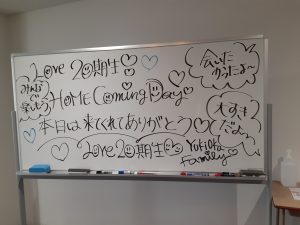 Love 20期生
みんなで楽しもう
会いたかったよ〜
HOME Coming Day
大すきだよ〜
本日は来てくれてありがとう
Love 20期生
Yukioka family